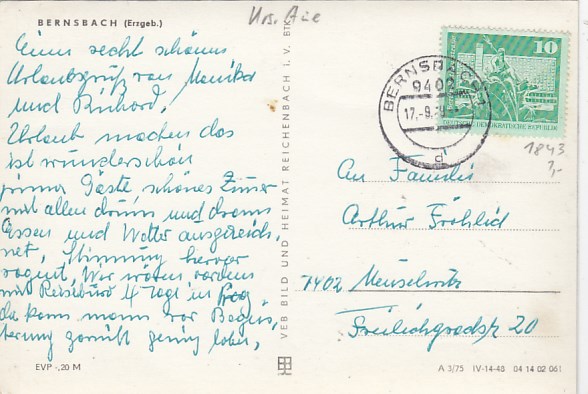 BERNSBACH (Erzgeb.)
Krs. Aue
Einen recht schönen
Urlaubsgruß von Monika
und Richard,
Urlaub machen das
ist wunderschön
prima Gäste schönes Zimmer
mit allen drum und drann
Essen und Wetter ausgezeich,
net, Stimmung hervor
ragent, Wir waren vordem
mit Reisebüro 4 Tage in Prag
da kann mann vor Begeis,
terung garnicht genug loben,
EVP -,20 M
VEB BILD UND HEIMAT REICHENBACH I. V. BTK
10
DEUTSCHE DEMOKRATISCHE REPUBLIK
BERNSBACH 1
9402
17.-9.
d
1843
An Familie
Arthur Fröhlich
7402 Meuselwitz
Freiligrathstr 20
A 3/75 IV-14-48 04 14 02 061